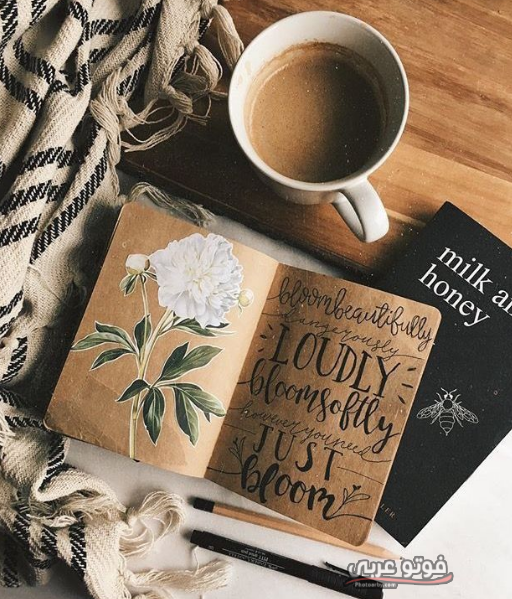 bloom beautifully
dangerously
LOUDLY
bloom softly
however you need
JUST
bloom
milk a
honey
LER
فوتو عربي